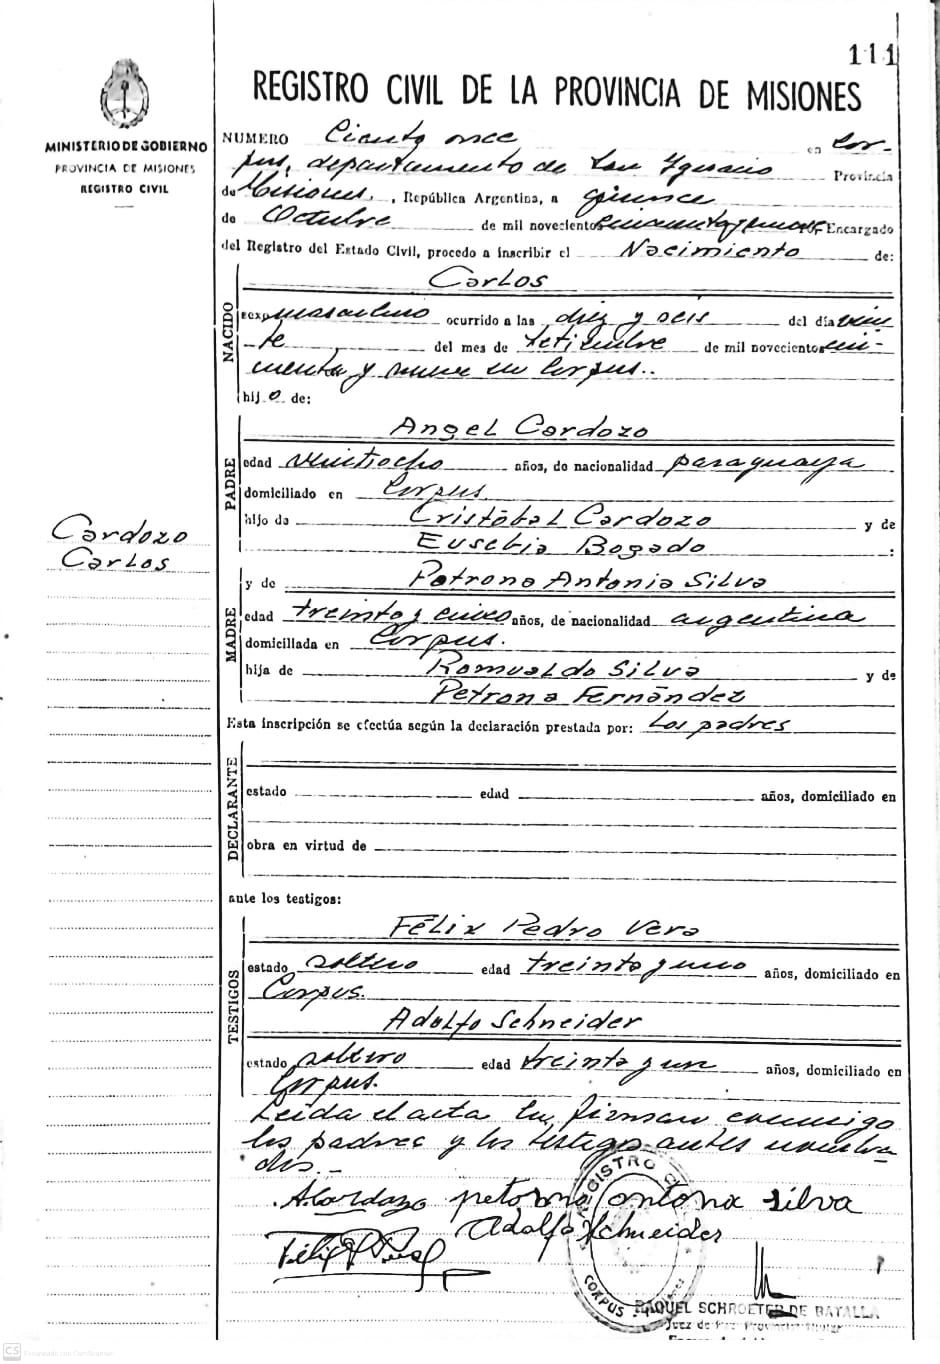 111
REGISTRO CIVIL DE LA PROVINCIA DE MISIONES
MINISTERIO DE GOBIERNO
PROVINCIA DE MISIONES
REGISTRO CIVIL
NUMERO Ciento once en Cor-
pus, departamento de San Ygnacio Provincia
de Misiones, República Argentina, a quince
de Octubre de mil novecientos cincuenta y nueve Encargado
del Registro del Estado Civil, procedo a inscribir el Nacimiento de:
NACIDO
Carlos
sexo masculino ocurrido a las diez y seis del día vein
te del mes de Setiembre de mil novecientos cin-
cuenta y nueve en Corpus..
hijo de:
PADRE
Angel Cardozo
edad veintiocho años, de nacionalidad paraguaya
domiciliado en Corpus
hijo de Cristóbal Cardozo y de
Eusebia Bogado :
Cardozo
Carlos
MADRE
y de Petrona Antonia Silva
edad treinta y cinco años, de nacionalidad argentina
domiciliada en Corpus.
hija de Romualdo Silva y de
Petrona Fernández
Esta inscripción se efectúa según la declaración prestada por: Los padres
DECLARANTE
estado edad años, domiciliado en
obra en virtud de
ante los testigos:
TESTIGOS
Félix Pedro Vera
estado soltero edad treinta y uno años, domiciliado en
Corpus.
Adolfo Schneider
estado soltero edad treinta y un años, domiciliado en
Corpus.
Leída el acta la firman conmigo
los padres y los testigos antes nombra
dos.-
A Cardozo petrona antona silva
Adolfo Schneider
REGISTRO
CORPUS
RAQUEL SCHROETER DE BATALLA
Juez de Paz
CS